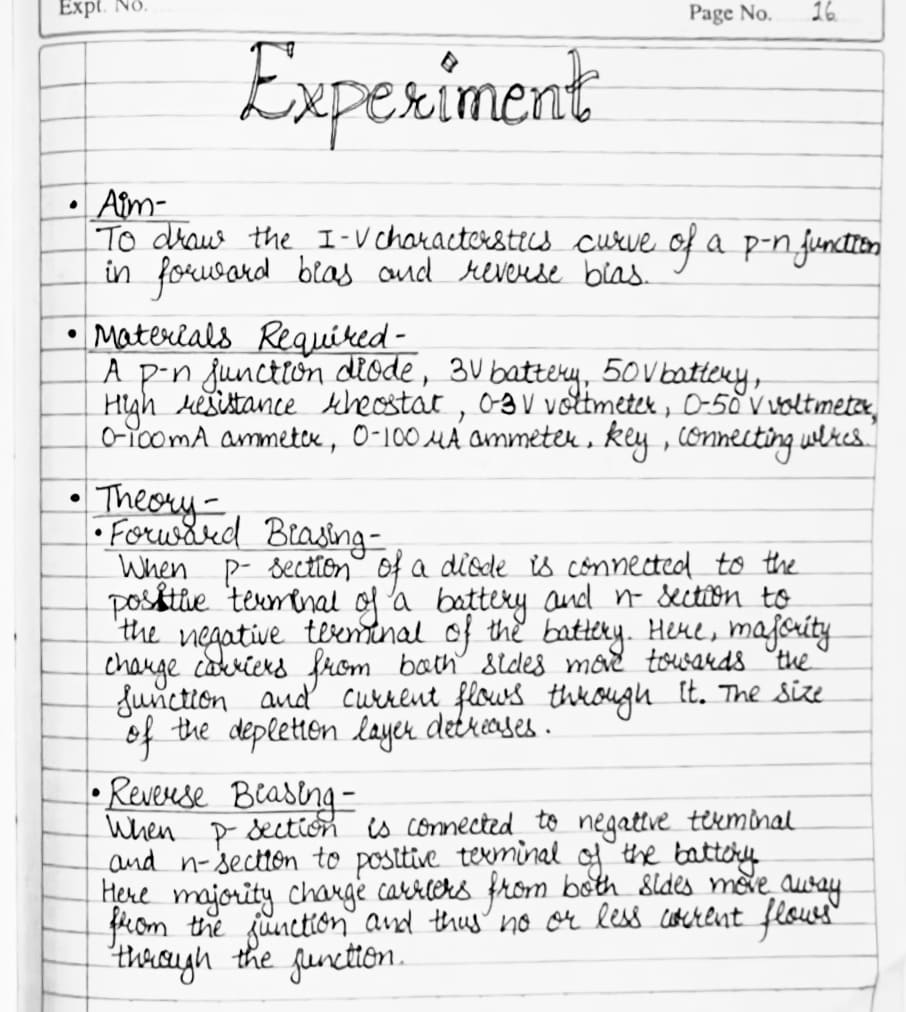 Expt. No.
Page No. 16
Experiment
• Aim-
To draw the I-V characterstics curve of a p-n junction
in forward bias and reverse bias.
• Materials Required-
A p-n junction diode, 3V battery, 50V battery,
High resistance rheostat, 0-3 V voltmeter, 0-50 V voltmeter,
0-100mA ammeter, 0-100 μA ammeter, key, connecting wires
• Theory-
• Forward Biasing-
When p- section of a diode is connected to the
positive terminal of a battery and n- section to
the negative terminal of the battery. Here, majority
charge carriers from both sides move towards the
junction and current flows through it. The size
of the depletion layer decreases.
• Reverse Biasing-
When p- section is connected to negative terminal
and n- section to positive terminal of the battery
Here majority charge carriers from both sides move away
from the junction and thus no or less current flows
through the junction.